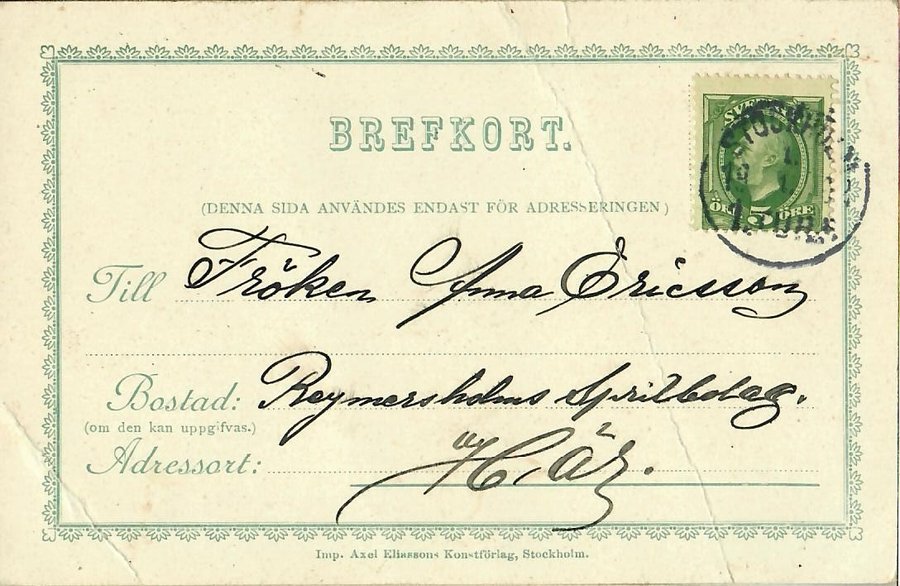 BREFKORT.
SVERIGE
STOCKHOLM
ÖRE 5 ÖRE
(DENNA SIDA ANVÄNDES ENDAST FÖR ADRESSERINGEN)
Till Fröken Anna Ericsson
Bostad: Reymersholms Spritbolag.
(om den kan uppgifvas.)
Adressort: Här.
Imp. Axel Eliassons Konstförlag, Stockholm.